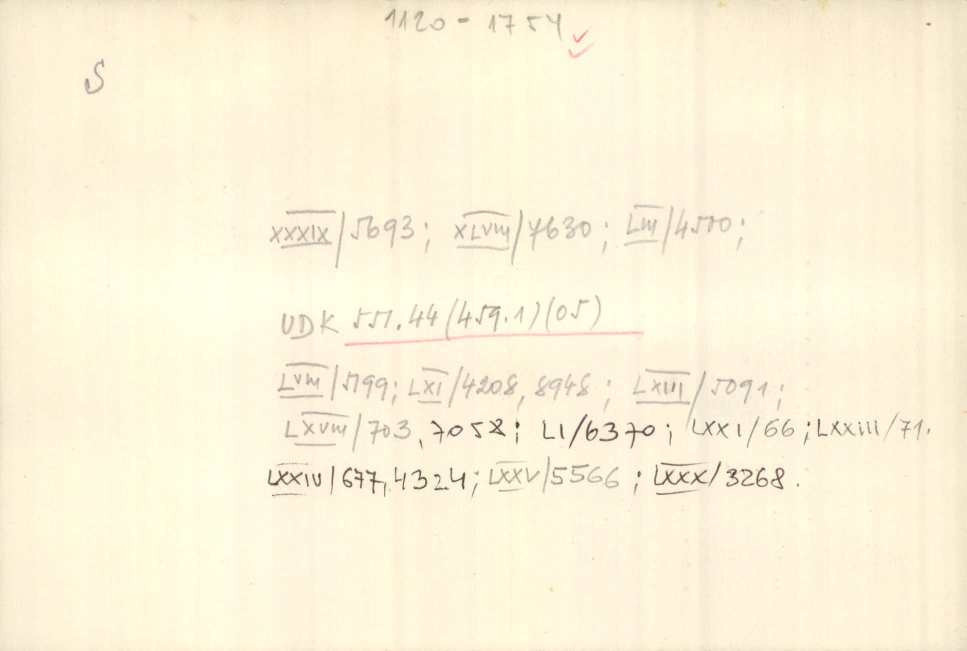 1120 - 1754
S
XXXIX/5693; XLVIII/7630; LIII/4500;
UDK 551.44(459.1)(05)
LVIII/5199; LXI/4208, 8948; LXIII/5091;
LXVIII/703, 7058; LI/6370; LXXI/66; LXXIII/71.
LXXIV/677, 4324; LXXV/5566; LXXX/3268.